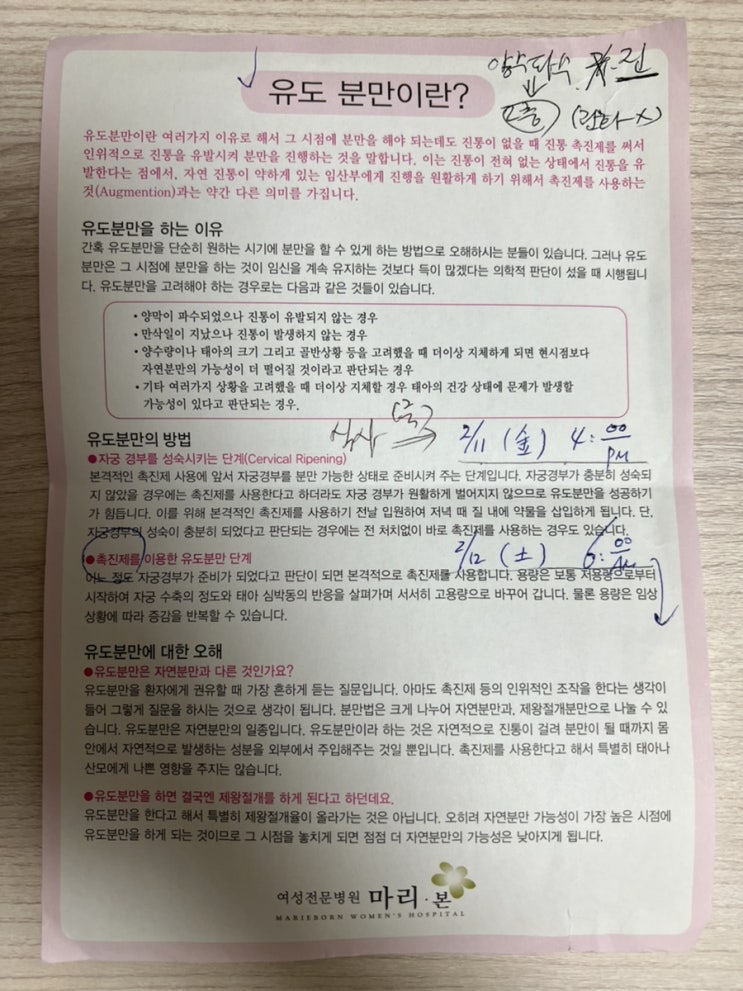 양수파수
유도 분만이란?
유도분만이란 여러가지 이유로 해서 그 시점에 분만을 해야 되는데도 진통이 없을 때 진통 촉진제를 써서
인위적으로 진통을 유발시켜 분만을 진행하는 것을 말합니다. 이는 진통이 전혀 없는 상태에서 진통을 유
발한다는 점에서, 자연 진통이 약하게 있는 임산부에게 진행을 원활하게 하기 위해서 촉진제를 사용하는
것(Augmention)과는 약간 다른 의미를 가집니다.
유도분만을 하는 이유
간혹 유도분만을 단순히 원하는 시기에 분만을 할 수 있게 하는 방법으로 오해하시는 분들이 있습니다. 그러나 유도
분만은 그 시점에 분만을 하는 것이 임신을 계속 유지하는 것보다 득이 많겠다는 의학적 판단이 섰을 때 시행됩니
다. 유도분만을 고려해야 하는 경우로는 다음과 같은 것들이 있습니다.
• 양막이 파수되었으나 진통이 유발되지 않는 경우
• 만삭일이 지났으나 진통이 발생하지 않는 경우
• 양수량이나 태아의 크기 그리고 골반상황 등을 고려했을 때 더이상 지체하게 되면 현시점보다
자연분만의 가능성이 더 떨어질 것이라고 판단되는 경우
• 기타 여러가지 상황을 고려했을 때 더이상 지체할 경우 태아의 건강 상태에 문제가 발생할
가능성이 있다고 판단되는 경우.
식사
2/11 (金) 4:00 PM
유도분만의 방법
●자궁 경부를 성숙시키는 단계(Cervical Ripening)
본격적인 촉진제 사용에 앞서 자궁경부를 분만 가능한 상태로 준비시켜 주는 단계입니다. 자궁경부가 충분히 성숙되
지 않았을 경우에는 촉진제를 사용한다고 하더라도 자궁 경부가 원활하게 벌어지지 않으므로 유도분만을 성공하기
가 힘듭니다. 이를 위해 본격적인 촉진제를 사용하기 전날 입원하여 저녁 때 질 내에 약물을 삽입하게 됩니다. 단,
자궁경부의 성숙이 충분히 되었다고 판단되는 경우에는 전 처치없이 바로 촉진제를 사용하는 경우도 있습니다.
●촉진제를 이용한 유도분만 단계
2/12 (土) 6:00 AM
어느 정도 자궁경부가 준비가 되었다고 판단이 되면 본격적으로 촉진제를 사용합니다. 용량은 보통 저용량으로부터
시작하여 자궁 수축의 정도와 태아 심박동의 반응을 살펴가며 서서히 고용량으로 바꾸어 갑니다. 물론 용량은 임상
상황에 따라 증감을 반복할 수 있습니다.
유도분만에 대한 오해
●유도분만은 자연분만과 다른 것인가요?
유도분만을 환자에게 권유할 때 가장 흔하게 듣는 질문입니다. 아마도 촉진제 등의 인위적인 조작을 한다는 생각이
들어 그렇게 질문을 하시는 것으로 생각이 됩니다. 분만법은 크게 나누어 자연분만과, 제왕절개분만으로 나눌 수 있
습니다. 유도분만은 자연분만의 일종입니다. 유도분만이라 하는 것은 자연적으로 진통이 걸려 분만이 될 때까지 몸
안에서 자연적으로 발생하는 성분을 외부에서 주입해주는 것일 뿐입니다. 촉진제를 사용한다고 해서 특별히 태아나
산모에게 나쁜 영향을 주지는 않습니다.
●유도분만을 하면 결국엔 제왕절개를 하게 된다고 하던데요.
유도분만을 한다고 해서 특별히 제왕절개율이 올라가는 것은 아닙니다. 오히려 자연분만 가능성이 가장 높은 시점에
유도분만을 하게 되는 것이므로 그 시점을 놓치게 되면 점점 더 자연분만의 가능성은 낮아지게 됩니다.
여성전문병원 마리·본
MARIEBORN WOMEN'S HOSPITAL